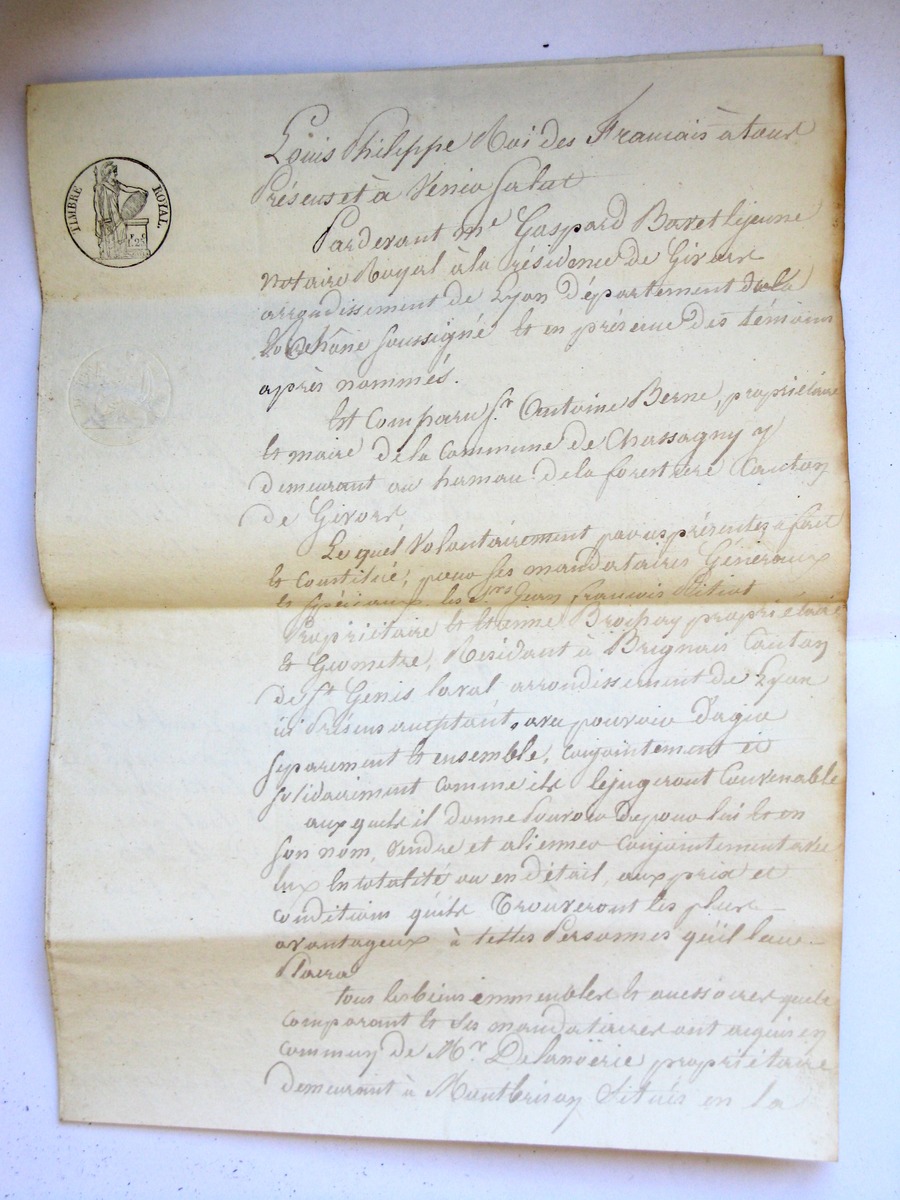 TIMBRE ROYAL.
1F. 25C
Louis Philippe Roi des Francais à tous
Présens et à Venir Salut
Pardevant Me Gaspard Bavet Lejeune
Notaire Royal à la résidence de Givors
arrondissement de Lyon département de la
Rhône soussigné et en présence des témoins
après nommés.
Est Comparu Sr Antoine Berne, propriétaire
et maire de la Commune de Chassagny y
demeurant au hameau de la forestiere Canton
de Givors
Lequel Volontairement par ces présentes a fait
et Constitué, pour ses mandataires Généraux
et Spéciaux les Srs Jean francois
Propriétaire et Etienne Brochay propriétaire
et Géometre, Résidant à Brignais Canton
de St Genis laval arrondissement de Lyon
ici Présens acceptant, avec pouvoir d'agir
séparement et ensemble, conjointement et
solidairement comme ils le jugeront Convenable
auxquels il donne Pouvoir de pour lui et en
son nom, Vendre et aliener conjointement avec
Eux En totalité ou en détail, aux prix et
conditions quils Trouveront les plus
avantageux à telles Personnes qu'il leur
Plaira
tous les biens immeubles et accessoires que le
comparant et ses mandataires ont acquis en
commun de Mr. Delanoërie propriétaire
demeurant à Montbrison Situés en la